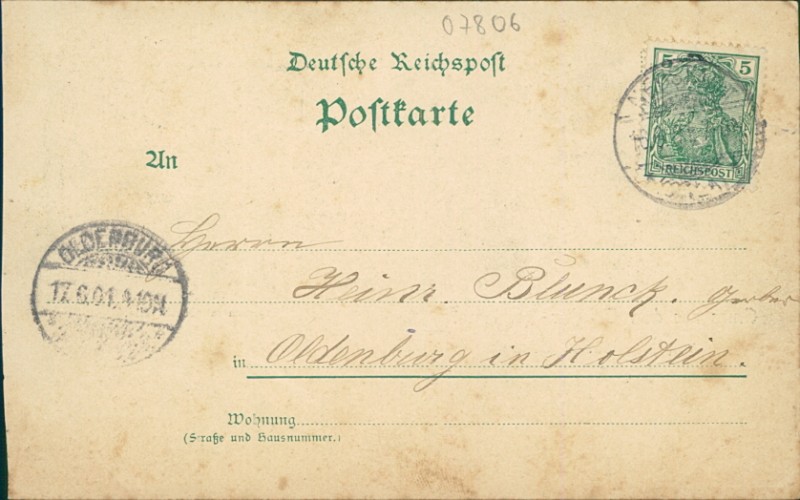 07806
Deutsche Reichspost
Postkarte
5 5
REICHSPOST
An
Herrn
OLDENBURG
17.6.01. 4-10N
Heinr. Blunck. Gerber
in Oldenburg in Holstein.
Wohnung
(Straße und Hausnummer.)